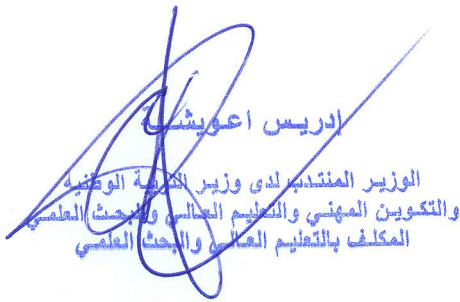 إدريس اعويشة
الوزير المنتدب لدى وزير التربية الوطنية
والتكوين المهني والتعليم العالي والبحث العلمي
المكلف بالتعليم العالي والبحث العلمي